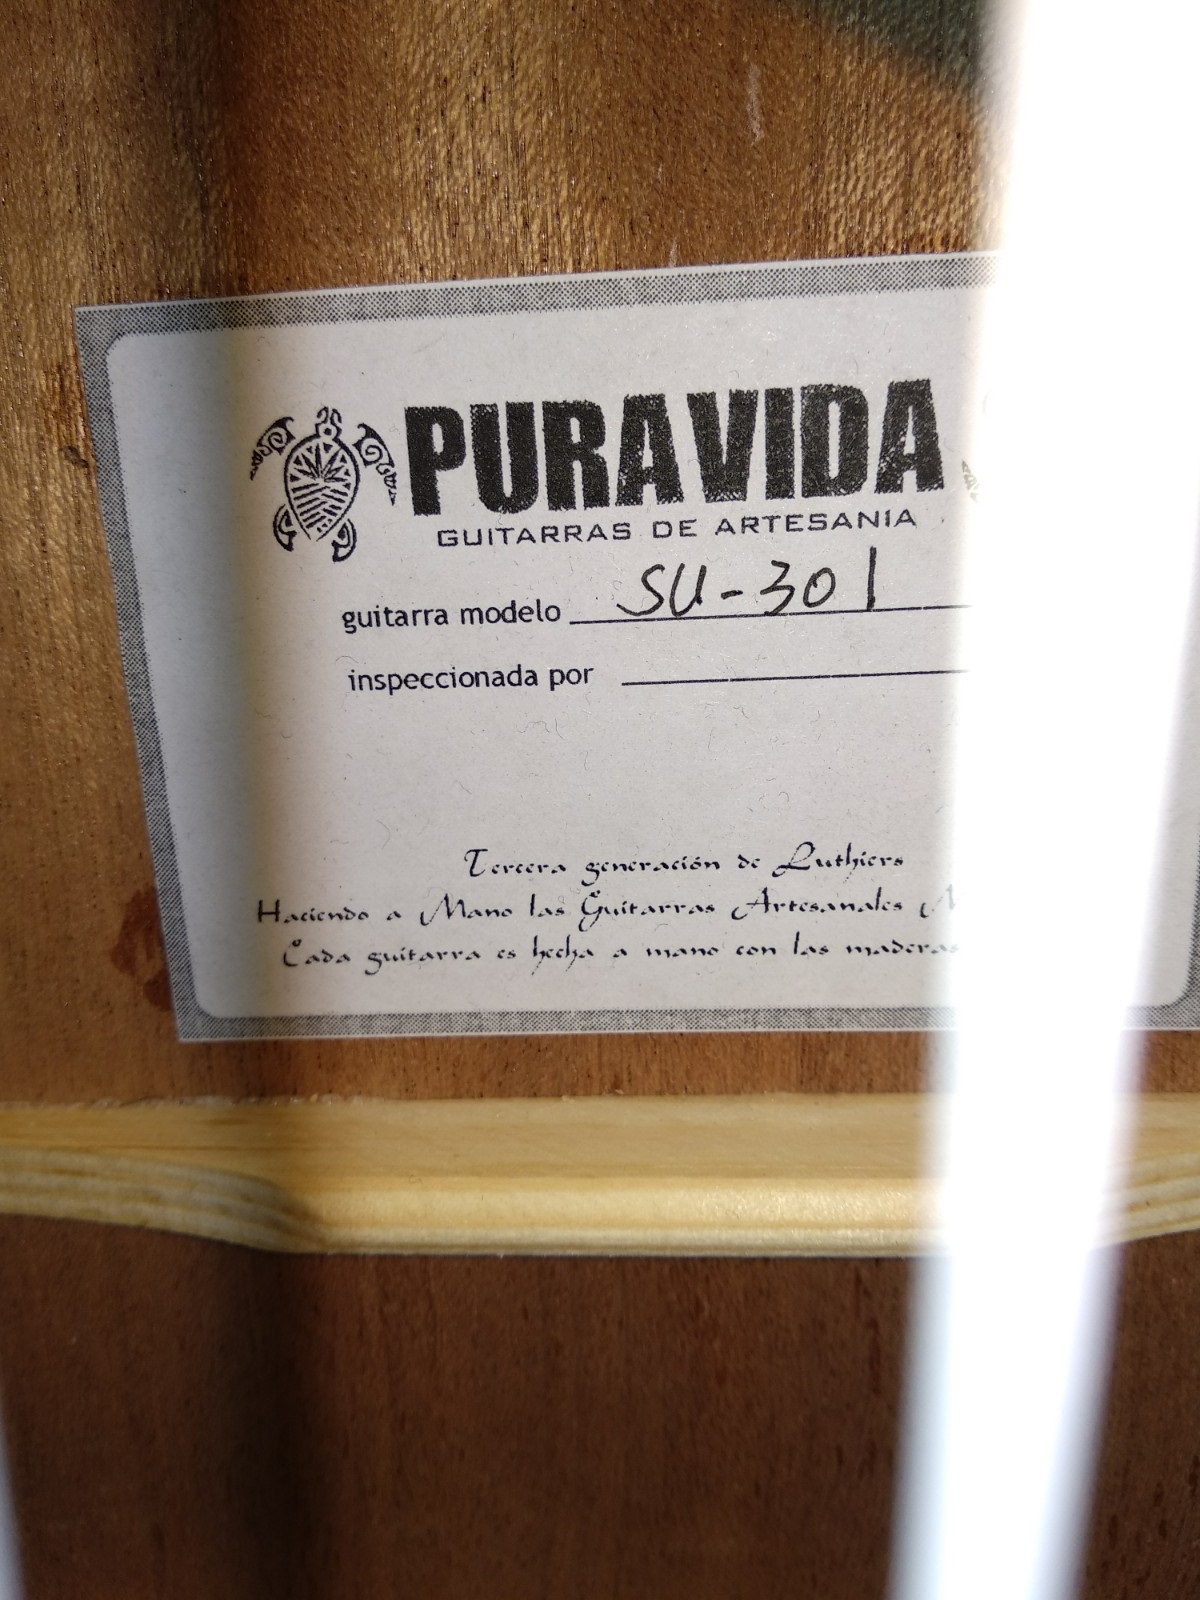 PURA VIDA
GUITARRAS DE ARTESANIA
guitarra modelo SU-301
inspeccionada por
Tercera generación de Luthiers
Haciendo a Mano las Guitarras Artesanales
Cada guitarra es hecha a mano con las maderas